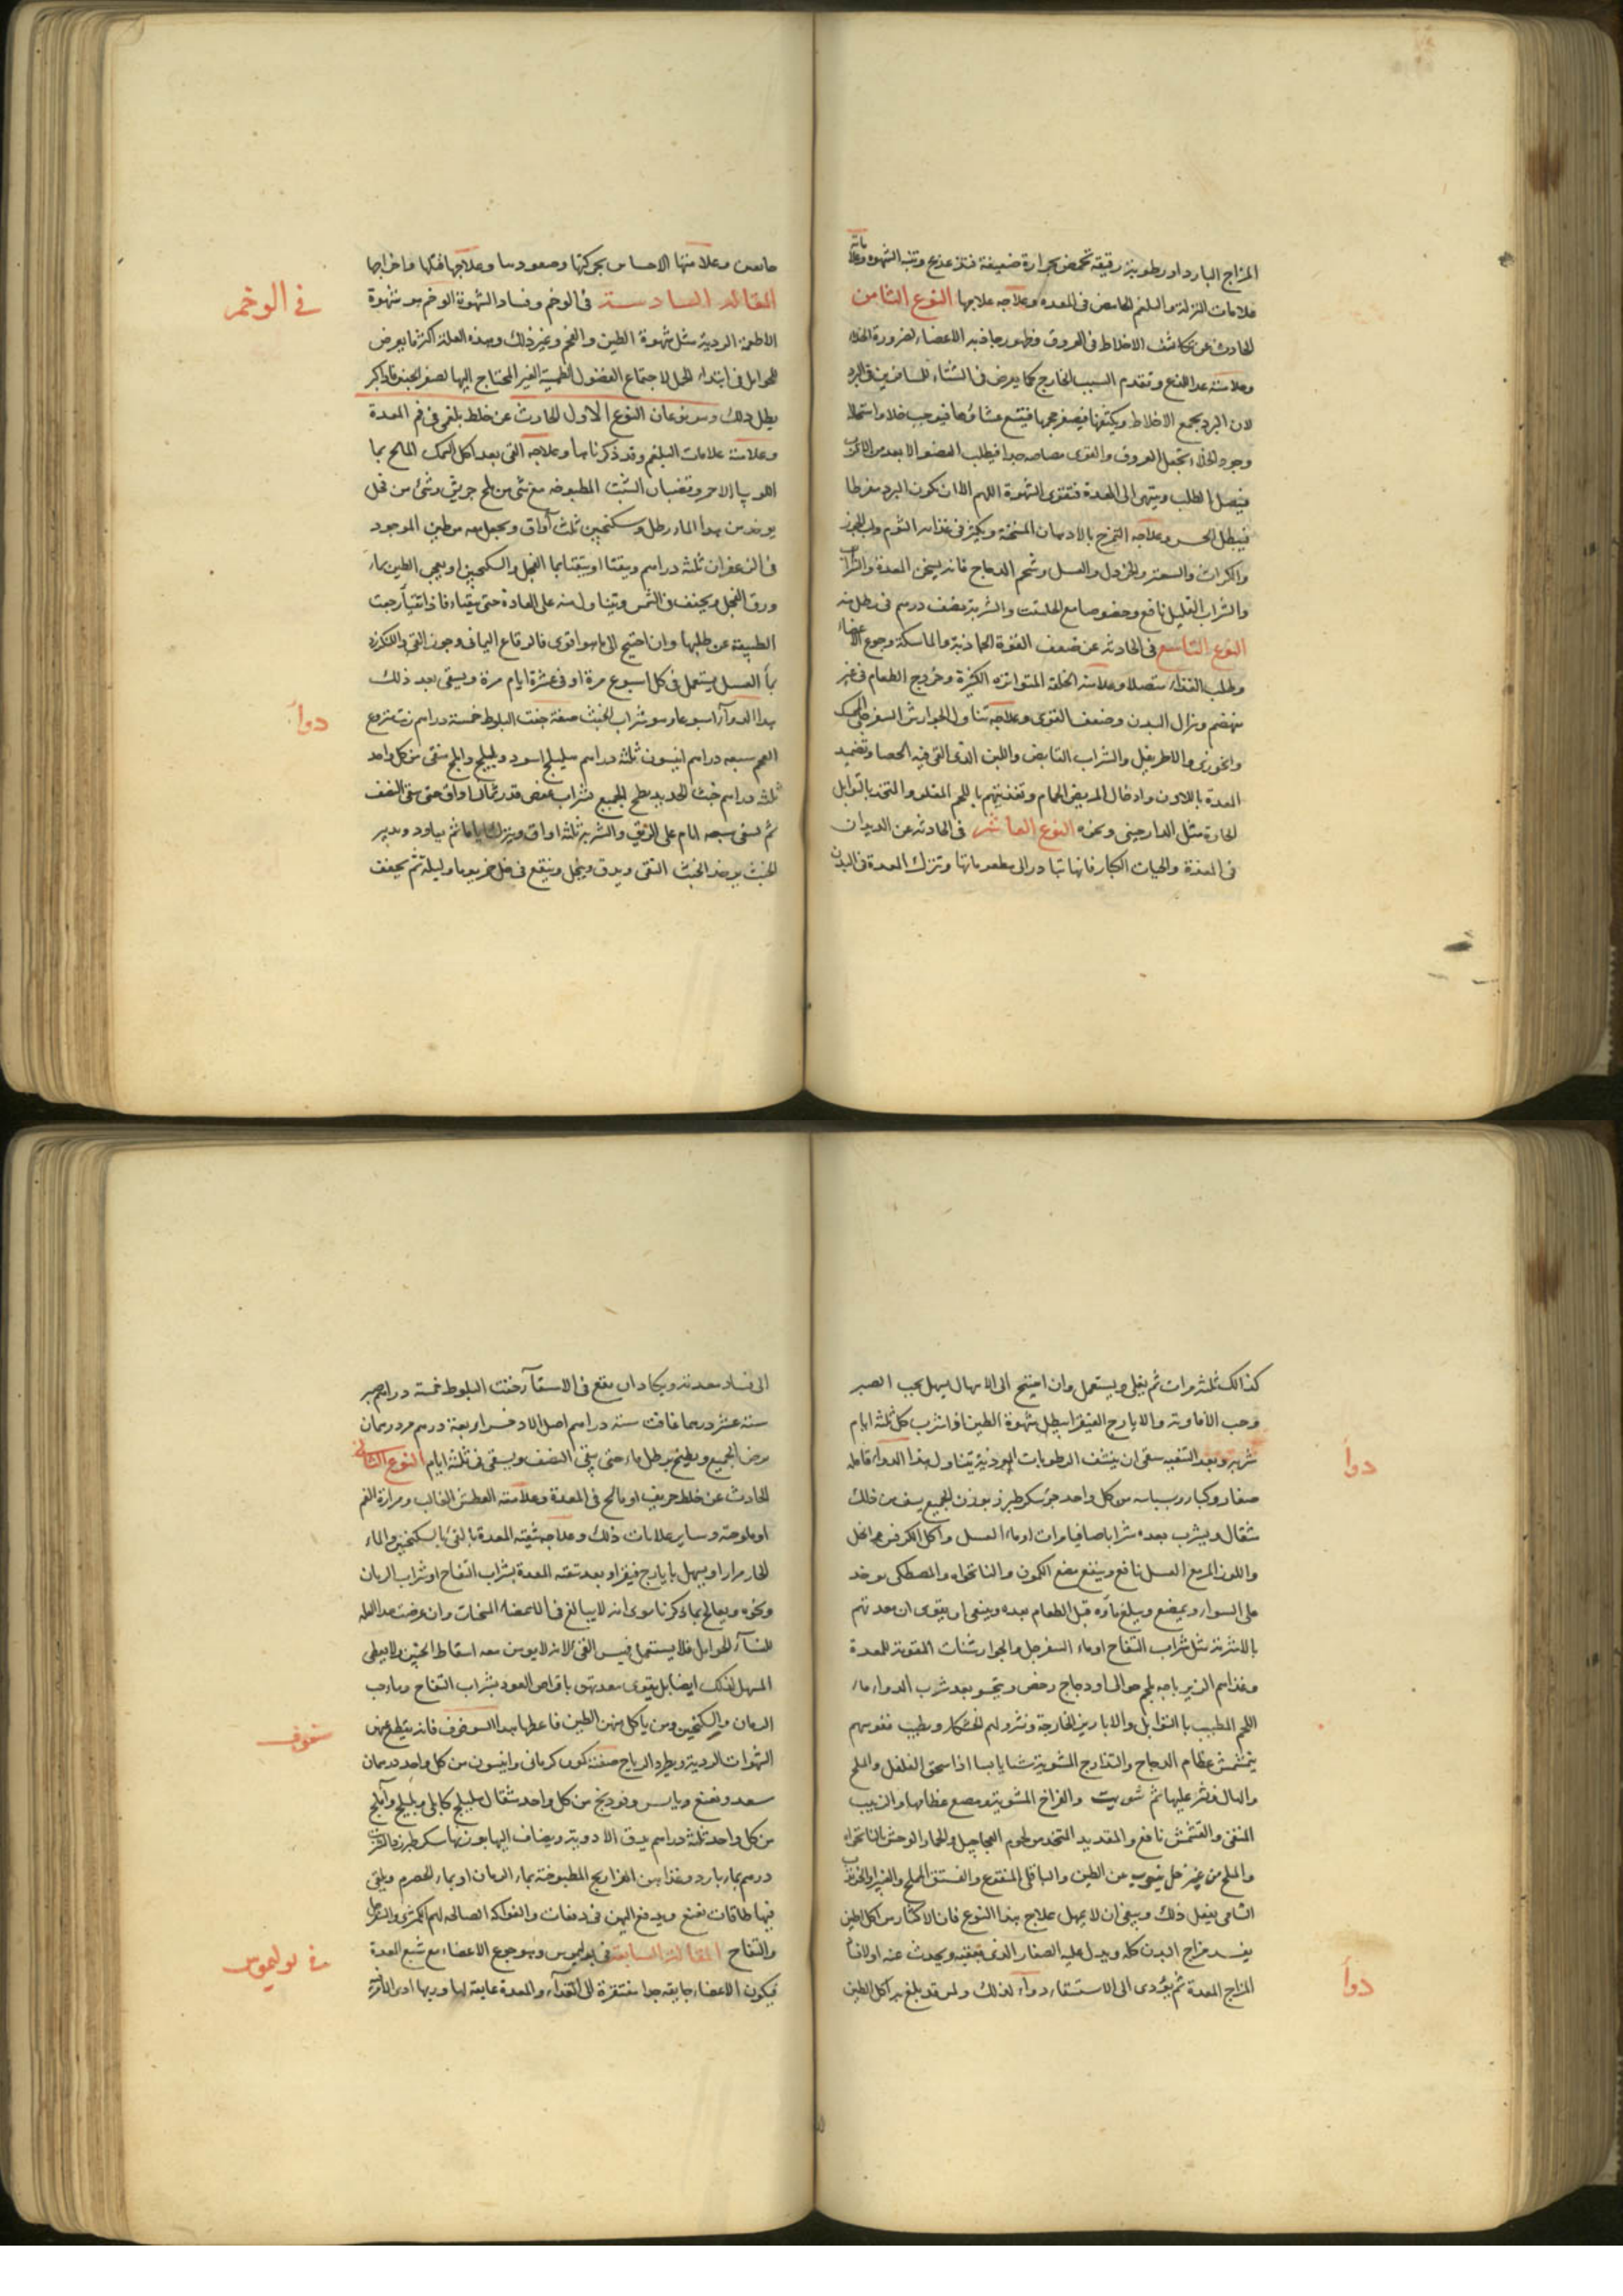 المزاج البارد او رطوبة رقيقة تحمض بحرارة ضعيفة فتلذع وتنبه الشهوة وعلاماته
علامات النزلة والبلغم الحامض فى المعدة وعلاجه علاجها النوع الثامن
الحادث عن تكاثف الاخلاط فى العروق وظهور جاذبه الاعضاء لضرورة الخلاء
وعلامته هذا النوع وتقدم السبب الخارج كما يعرض فى الشتاء للمسافرين فى البرد
لان البرد يجمع الاخلاط ويكثفها فيصغر حجمها فيتسع غشاؤها فيوجب خلاء واستحالة
وجود الخلاء تجعل العروق والقوى مصاصه جدا فيطلب العضو الابعد من الاقرب
فيتصل الطلب وينتهى الى المعدة فتقوى الشهوة اللهم الا ان يكون البرد مفرطا
فيبطل الحس وعلاجه التمريخ بالادهان المسخنة ويكثر فى غذائه الثوم ولب الجوز
والكراث والسعتر والخردل والعسل وشحم الدجاج فانه يسخن المعدة والشراب
والشراب القليل نافع وخصوصا مع الحلتيت والشربة نصف درهم فى رطل منه
النوع التاسع فى الحادثة عن ضعف القوة الجاذبة والماسكة وجوع الاعضاء
وطلب الغذاء متصلا وعلامته الخلفة المتواترة الكثيرة وخروج الطعام فى غير
منهضم وهزال البدن وضعف القوى وعلاجه تناول الجوارش السفرجلى الممسك
والخوزى والاطريفل والشراب القابض واللبن الذى القى فيه الحصا وتضميد
المعدة باللادن وادخال المريض الحمام وتغذيتهم باللحم المقلو والمتخذ بالتوابل
الحارة مثل الدارصينى ونحوه النوع العاشر فى الحادثة عن الديدان
فى المعدة والحيات الكبار فانها تبادر الى مطعوماتها وتترك المعدة والبدن
جائعين وعلامتها الاحساس بحركتها وصعودها وعلاجها قتلها واخراجها
المقالة السادسة فى الوخم وفساد الشهوة الوخم هو شهوة
الاطعمة الردية مثل شهوة الطين والفحم وغير ذلك وهذه العلة اكثر ما يعرض
للحوامل فى ابتداء الحمل لاجتماع الفضول الطمثية الغير المحتاج اليها لصغر الجنين فاذا كبر
بطل ذلك وهو نوعان النوع الاول الحادث عن خلط بلغمى فى فم المعدة
وعلامته علامات البلغم وقد ذكرناها وعلاجه القى بعد اكل السمك المالح بما
اللوبيا الاحمر وقضبان الشبت المطبوخة مع شى من ملح جريش وشئ من فجل
يوخذ من هذا الماء رطل وسكنجبين ثلث اواق ويجعل معه من طين الموجود
فى الزعفران ثلثة دراهم ويتقيا او يتقيا بماء الفجل والسكنجبين او يعجن الطين بماء
ورق الفجل ويجفف فى الشمس ويتناول منه على العادة حتى يتقياه فاذا تقيأ رجعت
الطبيعة عن طلبها وان احتيج الى ما هو اقوى فالرقاع اليمانى وجوز القى والكنكرزد
بماء العسل يستعمل فى كل اسبوع مرة او فى عشرة ايام مرة ويسقى بعد ذلك
هذا الدواء اسبوعا وهو شراب الخبث صفته جفت البلوط خمسة دراهم زبيب منزوع
العجم سبعه دراهم انيسون ثلثة دراهم هليلج اسود وبليلج واملج منقى من كل واحد
ثلثة دراهم خبث الحديد يطبخ الجميع بشراب عفص قدر ثمان اواق حتى يبقى النصف
ثم يسقى سبعه ايام على الريق والشربة ثلثة اواق ويترك اياما ثم يعاود وتدبير
الخبث يوخذ الخبث النقى ويدق وينخل وينقع فى خل خمر يوما وليلة ثم يجفف
فى الوخم
دواء
كذلك ثلثة مرات ثم يغلى ويستعمل وان احتيج الى الاسهال يسهل بحب الصبر
وحب الافاويه والايارج الفيقرا يبطل شهوة الطين اذا شرب كل ثلثة ايام
شربة وبعد التنقيه ينبغى ان ينشف الرطوبات الموذية يتناول هذا الدواء قاقله
صغار وكبار وبسباسه من كل واحد جزء سكر طبرزد بوزن الجميع يسف من ذلك
مثقال ويشرب بعده شرابا صافيا مرات او ماء العسل واكل الكرفس مع الخل
واللوز المر مع العسل نافع وينفع مضغ الكمون والنانخواه والمصطكى يوخذ
على السواء ويمضغ ويبلع ماؤه قبل الطعام وبعده وينبغى ان يقوى معدتهم
بالاشربة مثل شراب التفاح او ماء السفرجل والجوارشنات المقوية للمعدة
وغذاهم الزيرباجه بلحم حوالى او دجاج رخص ويتحسو بعد شرب الدواء ماء
اللحم المطيب بالتوابل والابازير الحارجة ونثر ولهم الخشكار ويطيب نفوسهم
بتمشمش عظام الدجاج والتدارج المشوية شيا يابسا اذا سحق الفلفل والملح
والهال ونثر عليها ثم شويت والفراخ المشوية ومصع عظامها والزبيب
المنقى والقشمش نافع والقديد المتخذ من لحوم العجاجيل والحمار الوحش بالنانخواه
والملح من غير خل ينوب عن الطين والباقلى المنقوع والفستق المملح
الشامى يفعل ذلك وينبغى ان لا يمهل علاج هذا النوع فان الاكثار من اكل الطين
يفسد مزاج البدن كله ويدل عليه الصفار الذى يتبعه ويحدث عنه اولا فساد
المزاج المعدة ثم يؤدى الى الاستسقاء دواء لذلك ولمن قد بلغ به اكل الطين
دواء
دواء
الى فساد معدته ويكاد ان يقع فى الاستسقاء جفت البلوط خمسة دراهم صبر
ستة عشر درهما غافت ستة دراهم اصل الاذخر اربعة درهم مر درهمان
يرض الجميع ويطبخ برطل ماء حتى يبقى النصف ويسقى فى ثلثة ايام النوع الثانى
الحادث عن خلط حريف او مالح فى المعدة وعلامته العطش الغالب ومرارة الفم
او ملوحته وساير علامات ذلك وعلاجه تنقيه المعدة بالقئ بالسكنجبين والماء
الحار مرارا ويسهل بايارج فيقرا وبعد تنقيه المعدة بشراب التفاح او شراب الرمان
ونحوه ويعالج بما ذكرنا سوى انه لا يبالغ فى الاستعمال المسخنات وان عرضت هذه العله
للنساء الحوامل فلا يستعمل فيهن القئ لانه لا يومن معه اسقاط الجنين ولا يعطى
المسهل لذلك ايضا بل يقوى معدتهن باقراص العود بشراب التفاح وماء حب
الرمان والسكنجبين ومن ياكل منهن الطين فاعطها هذا السفوف فانه يقطع عنهن
الشهوات الردية ويطرد الرياح صفته كمون كرمانى وانيسون من كل واحد درهمان
سعد ونعنع يابس وفودنج من كل واحد مثقال هليلج كابلى وبليلج وآملج
من كل واحد ثلثة دراهم يدق الادوية ويضاف اليها بوزنها سكر طبرزد والشربة
درهم بماء بارد وغذاهن الفراريج المطبوخة بماء الرمان او بماء الحصرم ويلقى
فيها طاقات نعنع ويدفع اليهن فى دفعات والفواكه الصالحه لهم الكمثرى والسفرجل
والتفاح المقالة السابعة فى بوليموس وهو جوع الاعضاء مع شبع المعدة
فيكون الاعضاء جايعه جدا مفتقرة الى الغذاء والمعدة عايفة لها وربما ادى الامر
سفوف
فى بوليموس